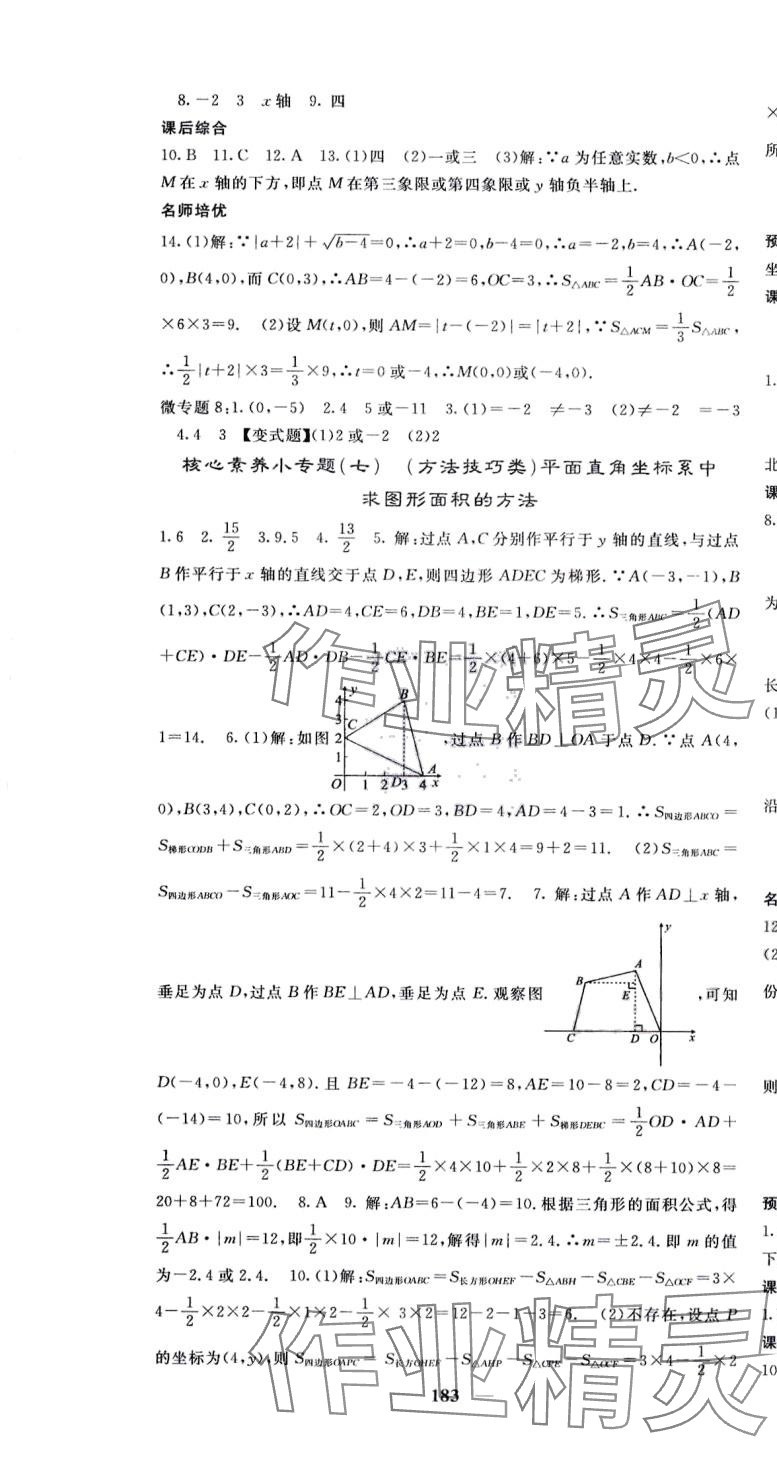 8.-2 3 x轴 9.四
课后综合
10.B 11.C 12.A 13.(1)四 (2)一或三 (3)解:∵a为任意实数,b<0,∴点
M在x轴的下方,即点M在第三象限或第四象限或y轴负半轴上.
名师培优
14.(1)解:∵|a+2|+√(b-4)=0,∴a+2=0,b-4=0,∴a=-2,b=4,∴A(-2,
0),B(4,0),而C(0,3),∴AB=4-(-2)=6,OC=3,∴S△ABC=1/2AB·OC=1/2
×6×3=9. (2)设M(t,0),则AM=|t-(-2)|=|t+2|,∵S△ACM=1/3S△ABC,
∴1/2|t+2|×3=1/3×9,∴t=0或-4,∴M(0,0)或(-4,0).
微专题8:1.(0,-5) 2.4 5或-11 3.(1)=-2 ≠-3 (2)≠-2 =-3
4.4 3 【变式题】(1)2或-2 (2)2
核心素养小专题(七) (方法技巧类)平面直角坐标系中
求图形面积的方法
1.6 2.15/2 3.9.5 4.13/2 5.解:过点A,C分别作平行于y轴的直线,与过点
B作平行于x轴的直线交于点D,E,则四边形ADEC为梯形.∵A(-3,-1),B
(1,3),C(2,-3),∴AD=4,CE=6,DB=4,BE=1,DE=5.∴S三角形ABC=1/2(AD
+CE)·DE-1/2AD·DB-1/2CE·BE=1/2×(4+6)×5-1/2×4×4-1/2×6×
1=14. 6.(1)解:如图
y
4
3
2
1
C
B
A
O
1
2
D
3
4
x
,过点B作BD⊥OA于点D.∵点A(4,
0),B(3,4),C(0,2),∴OC=2,OD=3,BD=4,AD=4-3=1.∴S四边形ABCO=
S梯形CODB+S三角形ABD=1/2×(2+4)×3+1/2×1×4=9+2=11. (2)S三角形ABC=
S四边形ABCO-S三角形AOC=11-1/2×4×2=11-4=7. 7.解:过点A作AD⊥x轴,
垂足为点D,过点B作BE⊥AD,垂足为点E.观察图
y
A
B
E
C
D
O
x
,可知
D(-4,0),E(-4,8).且BE=-4-(-12)=8,AE=10-8=2,CD=-4-
(-14)=10,所以S四边形OABC=S三角形AOD+S三角形ABE+S梯形DEBC=1/2OD·AD+
1/2AE·BE+1/2(BE+CD)·DE=1/2×4×10+1/2×2×8+1/2×(8+10)×8=
20+8+72=100. 8.A 9.解:AB=6-(-4)=10.根据三角形的面积公式,得
1/2AB·|m|=12,即1/2×10·|m|=12,解得|m|=2.4.∴m=±2.4.即m的值
为-2.4或2.4. 10.(1)解:S四边形OABC=S长方形OHEF-S△ABH-S△CBE-S△OCF=3×
4-1/2×2×2-1/2×1×2-1/2×3×2=12-2-1-3=6. (2)不存在,设点P
的坐标为(4,y),则S四边形OAPC=S长方形OHEF-S△AHP-S△CPE-S△OCF=3×4-1/2×2
183
作业精灵
作业精灵
×
所
预
坐
课
1.
北
课
8.
为
长
(1
沿
名
12
(2
份
则
预
1.
下
课
1.
课
10